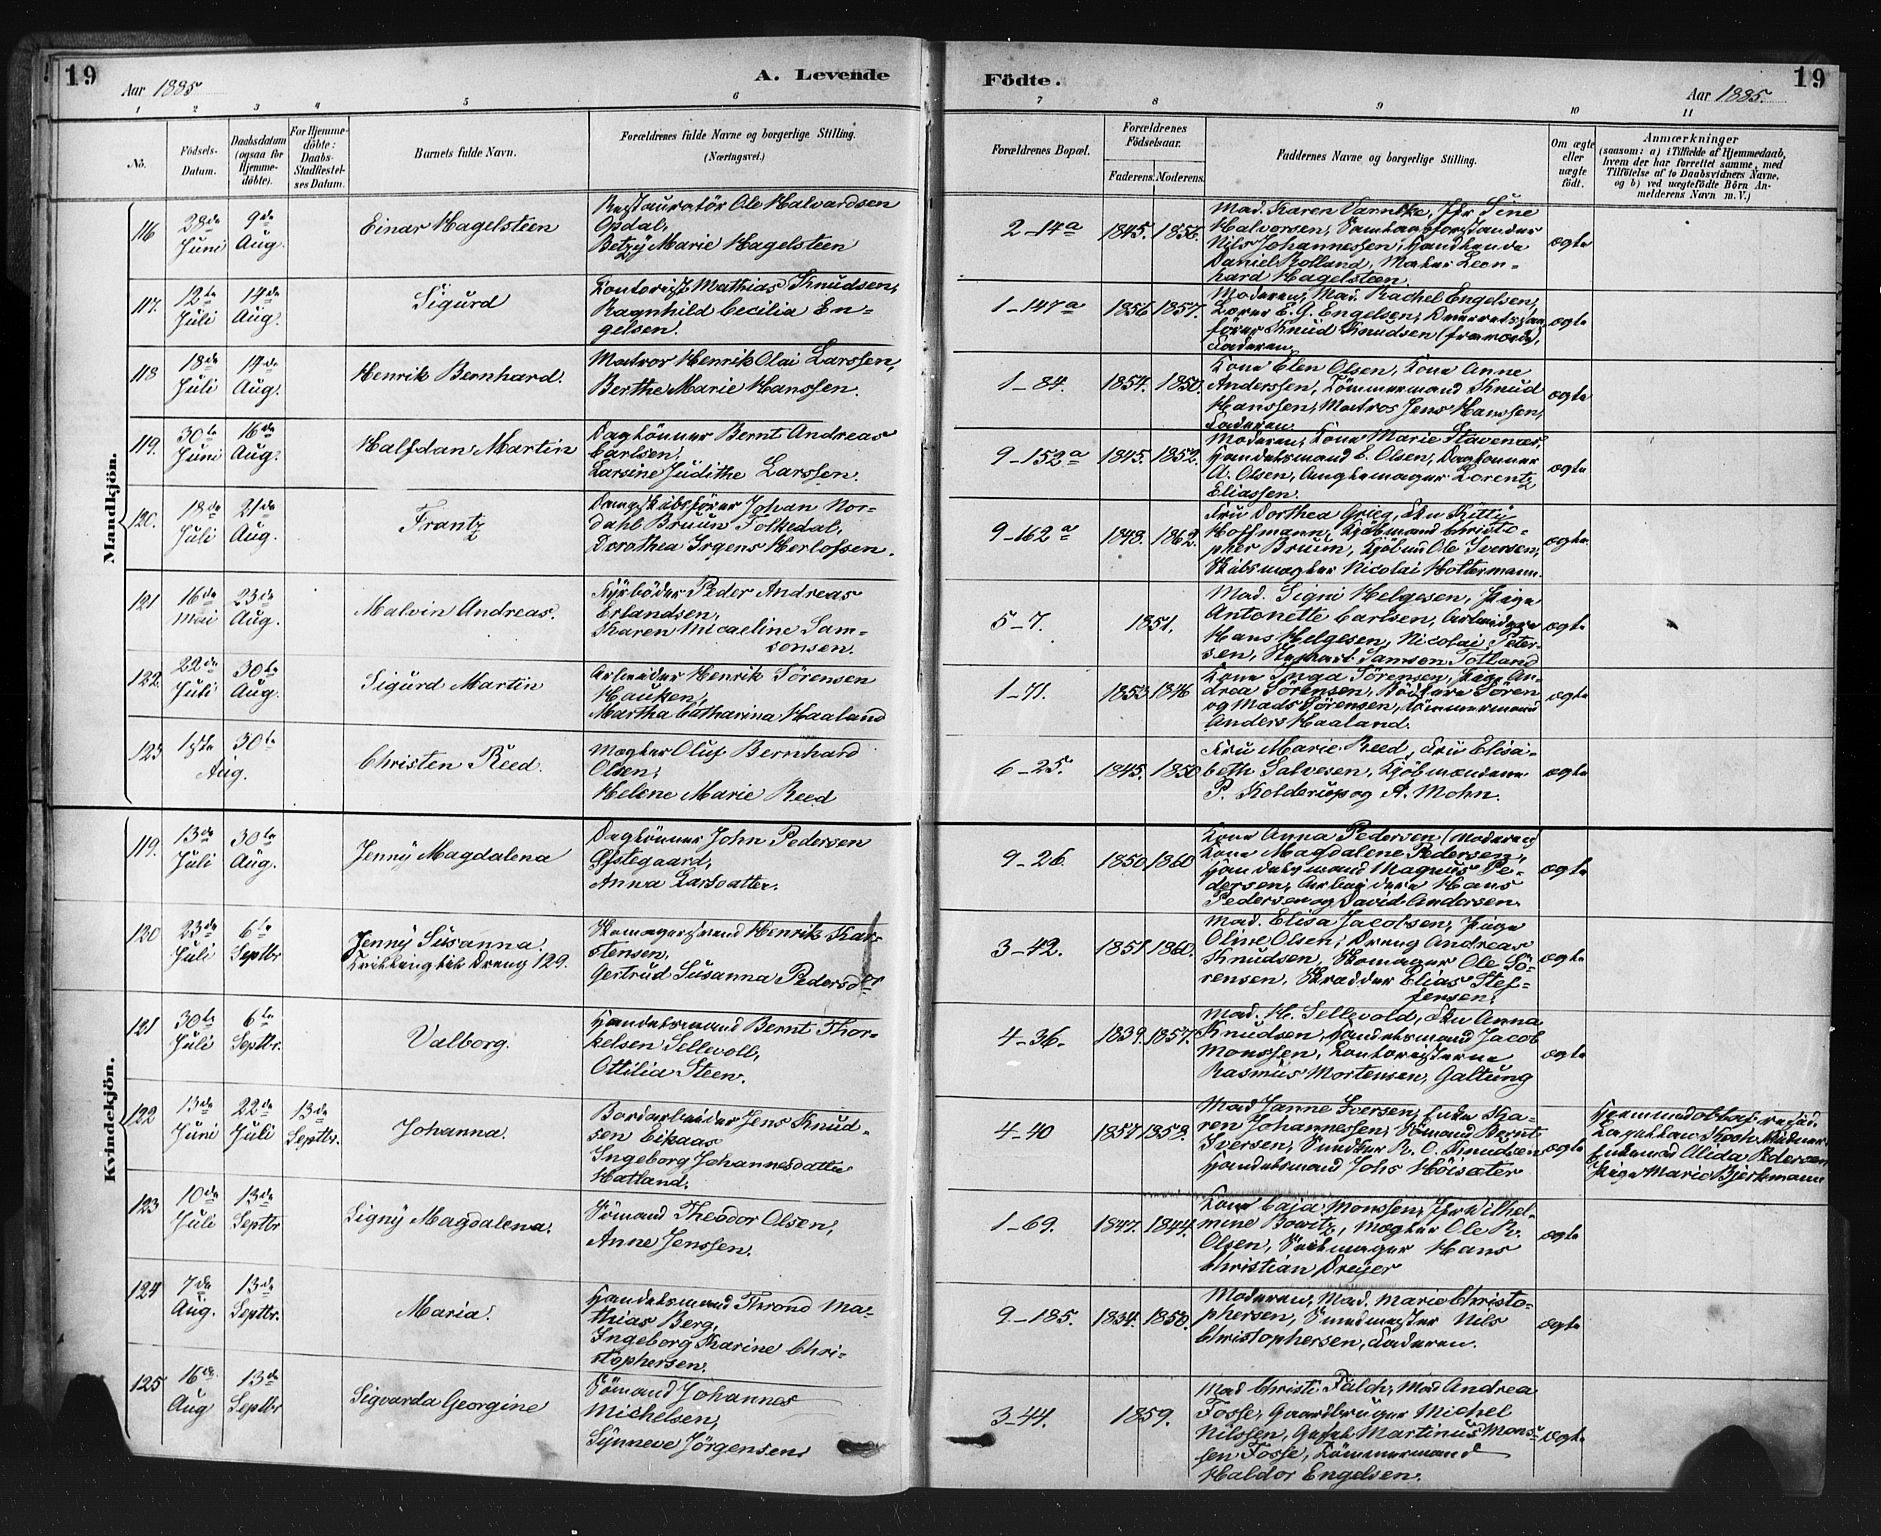 19
Aar 1885
A. Levende
Födte.
Aar 1885.
19
1 2 3 4 5 6 7 8 9 10 11
No.
Födsels-Datum.
Daabsdatum (ogsaa for Hjemme-döbte).
For Hjemme-döbte: Daabs-Stadfæstel-ses Datum.
Barnets fulde Navn.
Forældrenes fulde Navne og borgerlige Stilling.
(Næringsvei.)
Forældrenes Bopæl.
Forældrenes Födselsaar.
Faderens. Moderens.
Faddernes Navne og borgerlige Stilling.
Om ægte eller uægte födt.
Anmærkninger
(saasom: a) i Tilfælde af Hjemmedaab,
hvem der har forrettet samme, med
Tilföielse af to Daabsvidners Navne,
og b) ved uægtefödte Börn An-
melderens Navn m. V.)
Mandkjön.
116 28de Juni 9de Aug. Einar Hagelsteen
Restauratör Ole Halvardsen
Opdal,
Betzy Marie Hagelsteen
2-14a 1845. 1856.
Mad. Karen Vannike, Jfr Sine
Halvorsen,
Nils Johannessen, Handlende
Daniel Rolland, Maler Leon-
hard Hagelsteen
ægte
117. 12te Juli 14de Aug. Sigurd
Contorist Mathias Knudsen,
Ragnhild Cecilia En-
gelsen.
1-147a 1856 1857.
Moderen, Mad. Rachel Engelsen,
Lærer E. G. Engelsen,
Knud Knudsen
Faderen
ægte
118 18de Juli 14de Aug. Henrik Bernhard.
Matros Henrik Olai Larssen,
Berthe Marie Hanssen.
1-84. 1854. 1850.
Kone Elen Olsen, Kone Anne
Anderssen, Tömmermand Knud
Hanssen, Matros Jens Hanssen,
Faderen
ægte
119. 30te Juni 16de Aug. Halfdan Martin
Daglönner Bernt Andreas
Carlsen,
Larsine Judithe Larssen.
9-152a 1845. 1852.
Moderen, Kone Marie Stavenæs
Handelsmand E. Olsen, Daglönner
A. Olsen, Lorentz
Eliassen.
ægte
120. 18de Juli 21de Aug. Frantz
Dampskibsförer Johan Nor-
dahl Bruun Folkedal,
Dorothea Irgens Herlofsen.
9-162a 1848. 1862.
Fru Dorthea Grieg, Fru Kitty
Hoffmann, Kjöbmand Christo-
pher Bruun, Kjöbmd Ole Iversen,
Skibsmægler Nicolai Holtermann.
ægte.
121 16de Mai 23de Aug. Malvin Andreas.
Fyrböder Peder Andreas
Erlandsen,
Karen Micaeline Sam-
sonsen.
5-7. 1851.
Mad. Signe Helgesen, Pige
Antonette Carlsen, Arbeider
Hans Helgesen, Nicolai Peter-
sen, Samson Totland
ægte
122. 22de Juli 30te Aug. Sigurd Martin
Arbeider Henrik Sörensen
Hauken,
Martha Catharina Haaland
1-71. 1853. 1846
Kone Inga Sörensen, Pige An-
drea Sörensen, Bödkere Sören
og Mads Sörensen, Tömmermand
Anders Haaland.
ægte
123 1ste 30te Aug. Christen Reed.
Mægler Oluf Bernhard
Olsen,
Helene Marie Reed
6-25. 1845. 1850
Fru Marie Reed, Fru Elisa-
beth Salvesen, Kjöbmændene
P. Kolderup og A. Mohn.
ægte
Kvindekjön.
119. 13de Juli 30te Aug. Jenny Magdalena
Daglönner John Pedersen
Østegaard,
Anna Larsdatter.
9-26. 1850. 1860
Kone Anna Pedersen (Moderen)
Kone Magdalene Pedersen,
Handelsmand Magnus Pe-
dersen, Arbeidere Hans
Pedersen og David Andersen.
ægte
120 23de Juli 6te Septbr Jenny Susanna.
Tvilling til Dreng 129.
Skomagersvend Henrik Kar-
stensen,
Gertrud Susanna Pedersdtr
3-42. 1851. 1860.
Mad. Elisa Jacobsen, Pige
Oline Olsen, Dreng Andreas
Knudsen, Skomager Ole Sö-
rensen, Skrædder Elias Stef-
fensen.
ægte
121 30te Juli 6te Septbr. Valborg.
Handelsmand Bernt Thor-
kelsen Sellevoll,
Ottilia Steen.
4-36. 1839. 1857.
Mad. H. Sellevold, Fru Anna
Knudsen, Handelsmand Jacob
Monssen, Contoristerne
Rasmus Mortensen, Galtung
ægte
122 13de Juni 22de Juli 13de Septbr. Johanna.
Bordarbeider Jens Knud-
sen Eikaas
Ingeborg Johannesdatter
Hatland.
4-40 1857. 1858.
Mad Janne Iversen, Enke Ka-
ren Johannessen, Sömand Bernt
Iversen, Snedker R. C. Knudsen
Handelsmand Johs Höisæter
ægte
Hjemmedöbt af resid.
Kapellan Koch
Alida Pedersen
Pige Marie Bjerkmann
123 10de Juli 13de Septbr Signy Magdalena.
Sömand Theodor Olsen,
Anne Jenssen.
1-69. 1847. 1844.
Kone Caja Monssen, Jfr Wilhel-
mine Bowitz, Mægler Ole R.
Olsen, Seilmager Hans
Christian Dreyer
ægte
124 7de Aug. 13de Septbr. Maria.
Handelsmand Thrond Ma-
thias Berg,
Ingeborg Karine Chri-
stophersen.
9-185. 1834. 1850.
Moderen, Mad. Marie Christo-
phersen, Smedmester Nils
Christophersen, Faderen.
ægte
125 16de Aug 13de Septbr Sigvarda Georgine
Sömand Johannes
Michelsen,
Synneve Jörgensen
3-44. 1859.
Mad Christi Falch, Mad Andrea
Fosse, Gaardbruger Michel
Nilssen, Martinus Mons-
sen Fosse, Tömmermand
Haldor Engelsen.
ægte